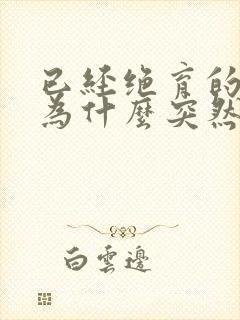 已经绝育的
為什麼突然
白雲邊